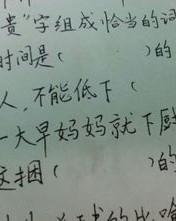 贵"字组成恰当的词
时间是（ ）的
人，不能低下（
一大早妈妈就下厨
这捆（ ）的